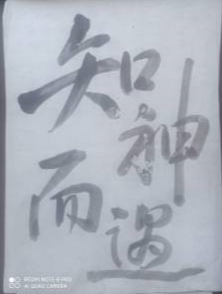 知神
而遇
REDMI NOTE 8 PRO
AI QUAD CAMERA